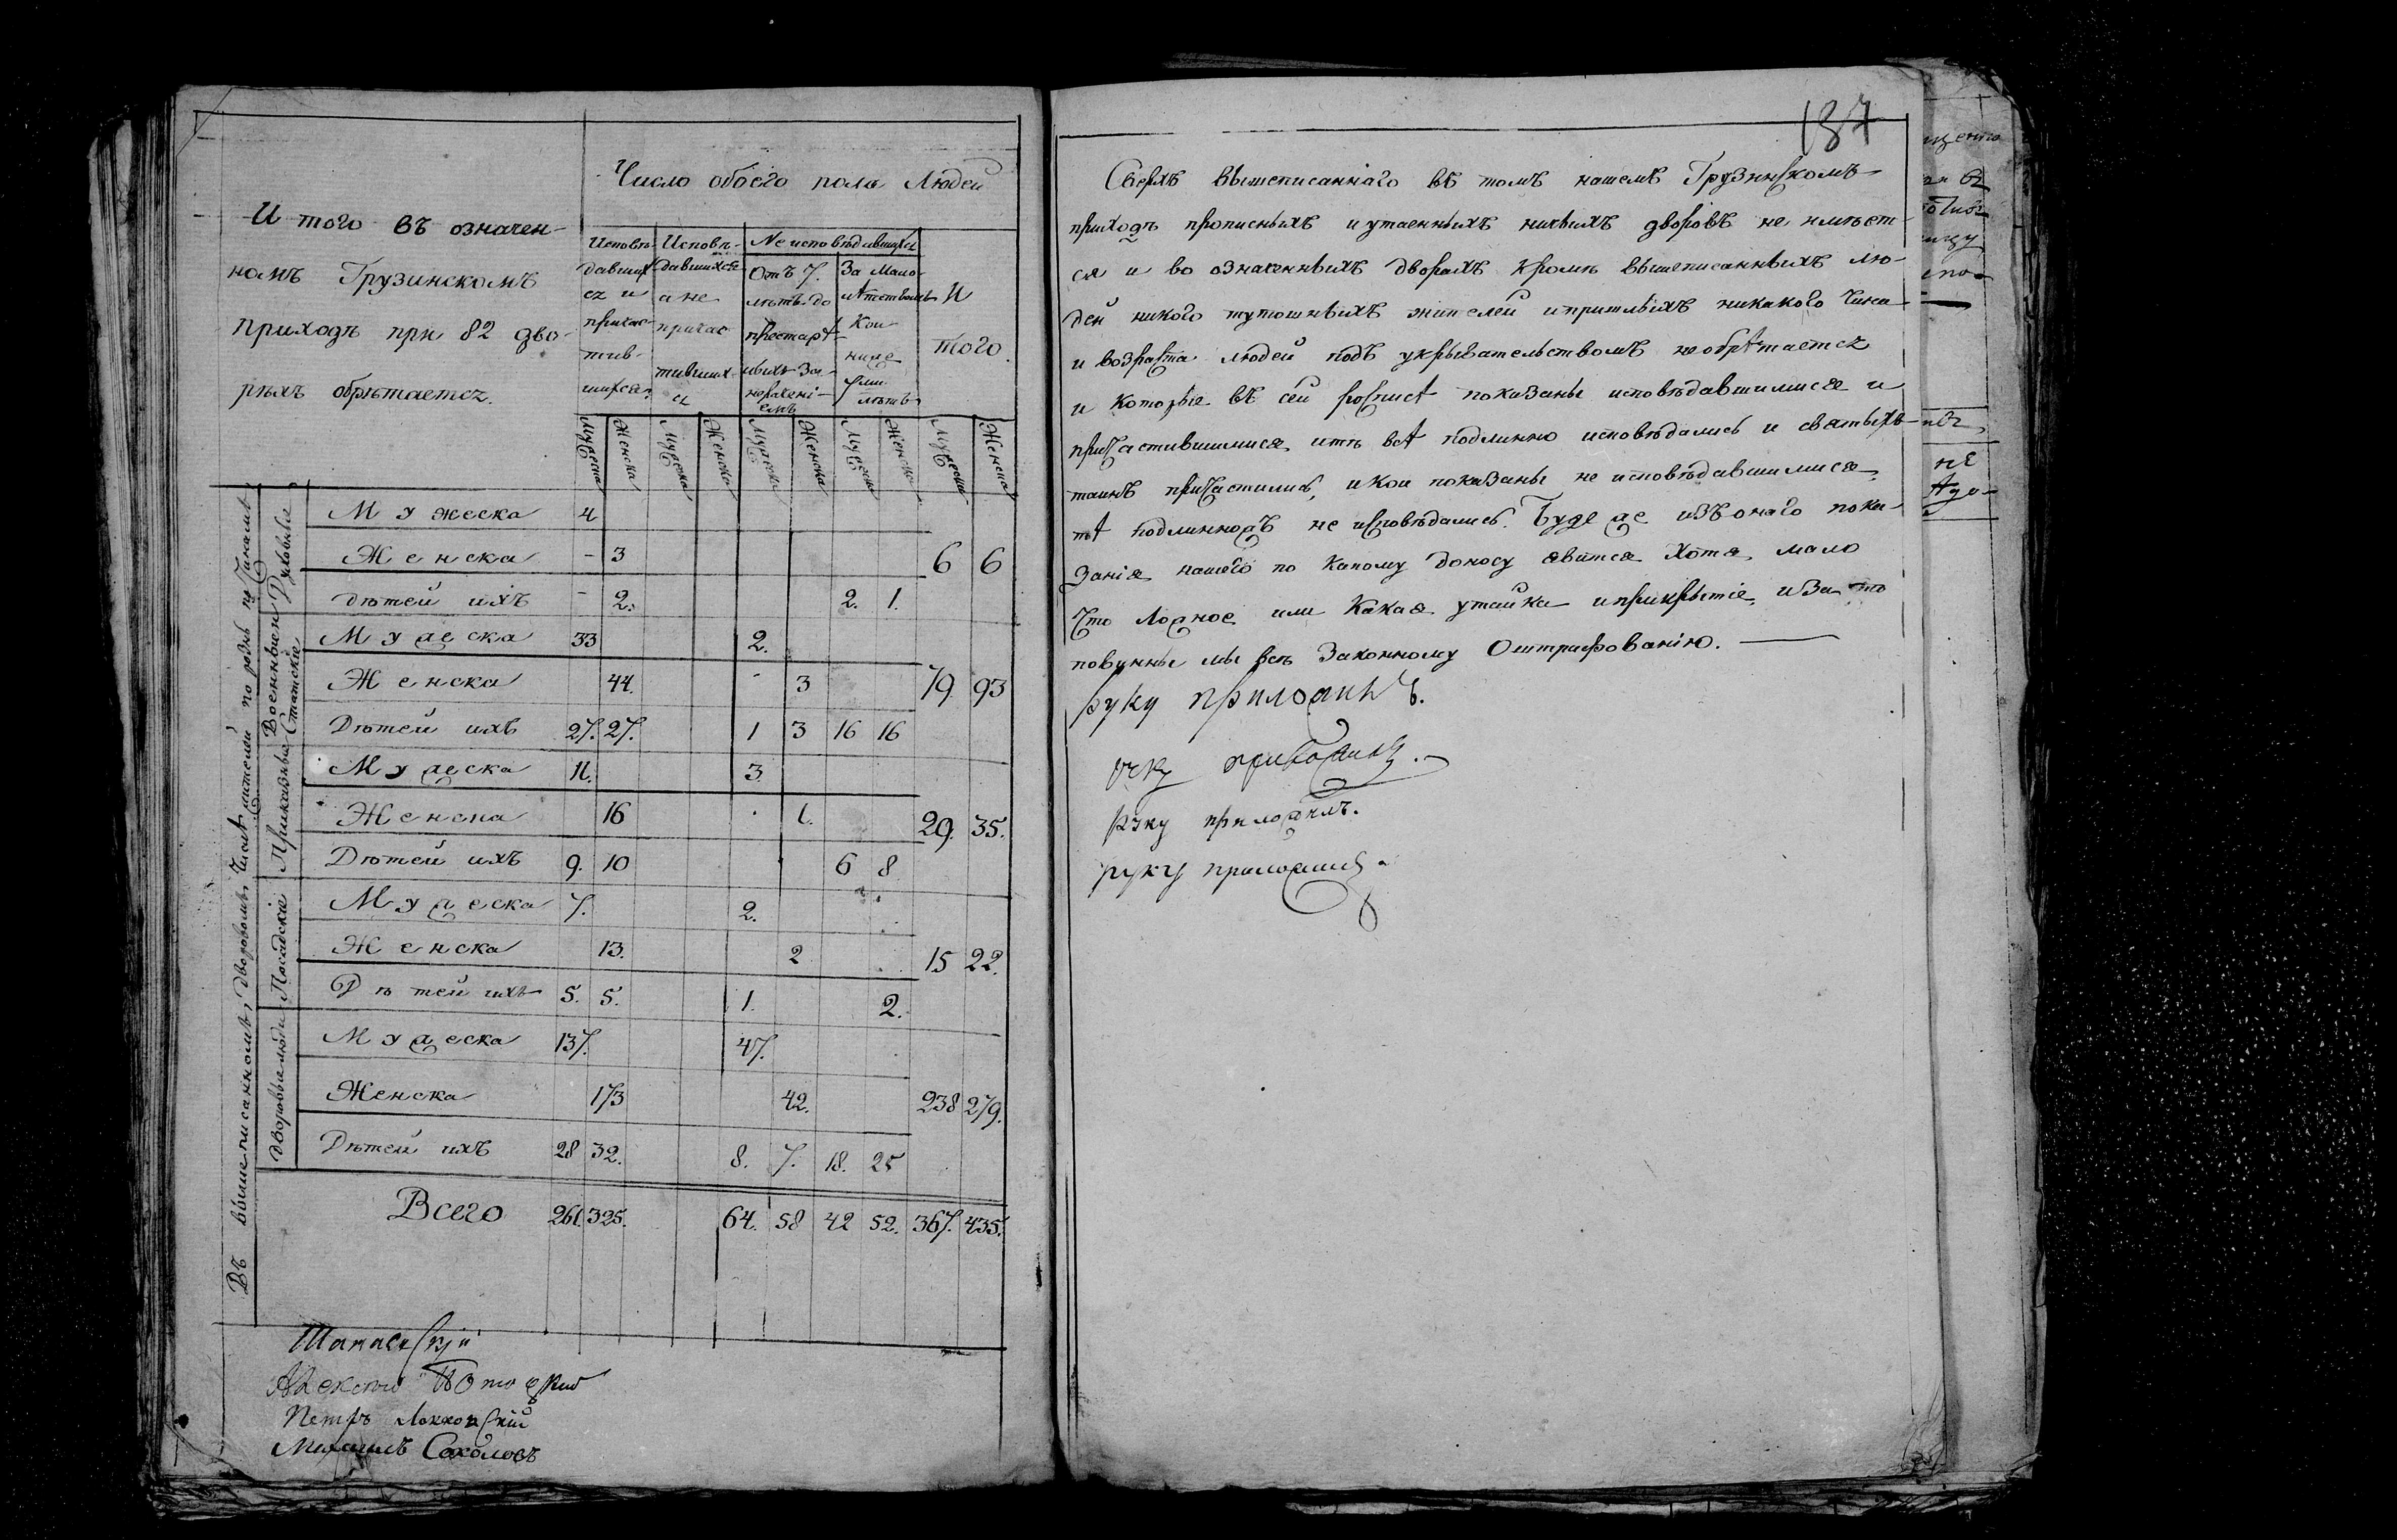 Итого въ означен-
номъ Грузинскомъ
приходѣ при 82 дво-
рѣхъ обрѣтается.
Число обоего пола людей
Исповѣ-
давших
ся и
причас-
тив-
шихся
Исповѣ-
давшихся
а не
причас
тивших-
ся
Не исповѣдавшихся
Отъ 7.
лѣтъ до
престарѣ-
лыхъ за
нерачені-
емъ
За мало-
лѣтствомъ
Кои
ниже
семи
лѣтъ
И
того.
Мужеска Женска Мужеска Женска Мужеска Женска Мужеска Женска Мужеска Женска
Въ вышеписанномъ дворовомъ числѣ жителей по рознь по чинамъ
Духовные
Мужеска 4
Женска - 3 6 6
дѣтей ихъ - 2. 2. 1.
Военныие Статскіе
Мужеска 33 2.
Женска 44. - 3 79 93
Дѣтей ихъ 27. 27. 1 3 16 16
Приказные
Мужеска 11. 3
Женска 16 1. 29. 35.
Дѣтей ихъ 9. 10 6 8
Посадскіе
Мужеска 7. 2.
Женска 13. 2 15 22.
Дѣтей ихъ 5. 5. 1. 2.
дворовые люди
Мужеска 137. 47.
Женска 173 42. 238 279.
Дѣтей ихъ 28 32. 8. 7. 18. 25
Всего 261. 325. 64. 58 42 52. 367. 435.
Алексѣй
Петръ
Михаилъ Соколовъ
187
Сверхъ вышеписаннаго въ томъ нашемъ Грузинскомъ
приходѣ прописныхъ и утаенныхъ ничьихъ дворовъ не имѣет
ся и во означенныхъ дворахъ кромѣ вышеписанныхъ лю-
дей никого тутошныхъ жителей и пришлыхъ никакого чина
и возраста людей подъ укрывательствомъ не обрѣтается
и которые въ сей росписѣ показаны исповѣдавшимися и
причастившимися, итѣ всѣ подлинно исповѣдались и святыхъ
таинъ причастились, и кои показаны не исповѣдавшимися,
тѣ подлинножъ не исповѣдались. Буде же изъ онаго пока
занія нашего по какому доносу явится хотя мало
что ложное или какая утайка и прикрытіе, и за то
повинны мы всѣ законному оштрафованію.
руку приложилъ.
руку приложилъ.
руку приложилъ.
руку приложилъ.